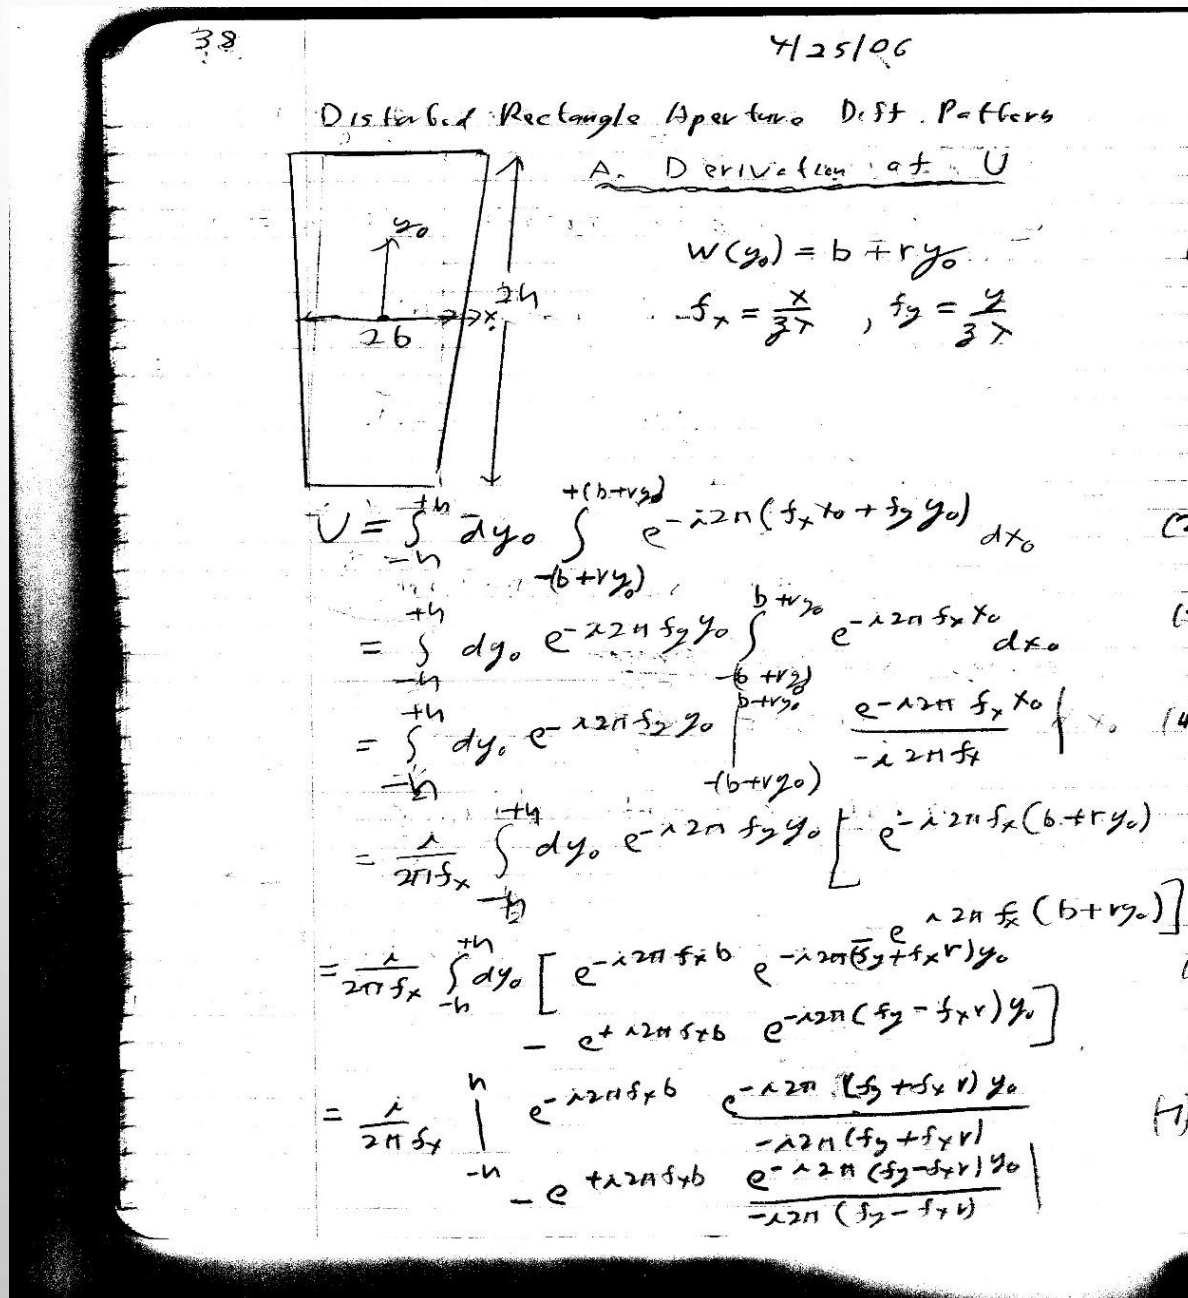 38
4/25/06
Distorbed Rectangle Aperture Diff. Pattern
A. Derivation of U
y₀
W(y₀) = b + ry₀
2h
x₀
2b
f_x = x/(zλ) , f_y = y/(zλ)
U = ∫_{-h}^{+h} dy₀ ∫_{-(b+ry₀)}^{+(b+ry₀)} e^{-i2π(f_x x₀ + f_y y₀)} dx₀ (2
= ∫_{-h}^{+h} dy₀ e^{-i2π f_y y₀} ∫_{-(b+ry₀)}^{b+ry₀} e^{-i2π f_x x₀} dx₀ (
= ∫_{-h}^{+h} dy₀ e^{-i2π f_y y₀} |_{-(b+ry₀)}^{b+ry₀} e^{-i2π f_x x₀}/(-i2π f_x) | x₀ (4
= i/(2π f_x) ∫_{-h}^{+h} dy₀ e^{-i2π f_y y₀} [ e^{-i2π f_x (b+ry₀)}
- e^{i2π f_x (b+ry₀)} ]
= i/(2π f_x) ∫_{-h}^{+h} dy₀ [ e^{-i2π f_x b} e^{-i2π(f_y + f_x r)y₀} (
- e^{+i2π f_x b} e^{-i2π(f_y - f_x r)y₀} ]
= i/(2π f_x) |_{-h}^{h} e^{-i2π f_x b} e^{-i2π(f_y + f_x r)y₀}/(-i2π(f_y + f_x r)) (7)
- e^{+i2π f_x b} e^{-i2π(f_y - f_x r)y₀}/(-i2π(f_y - f_x r)) |